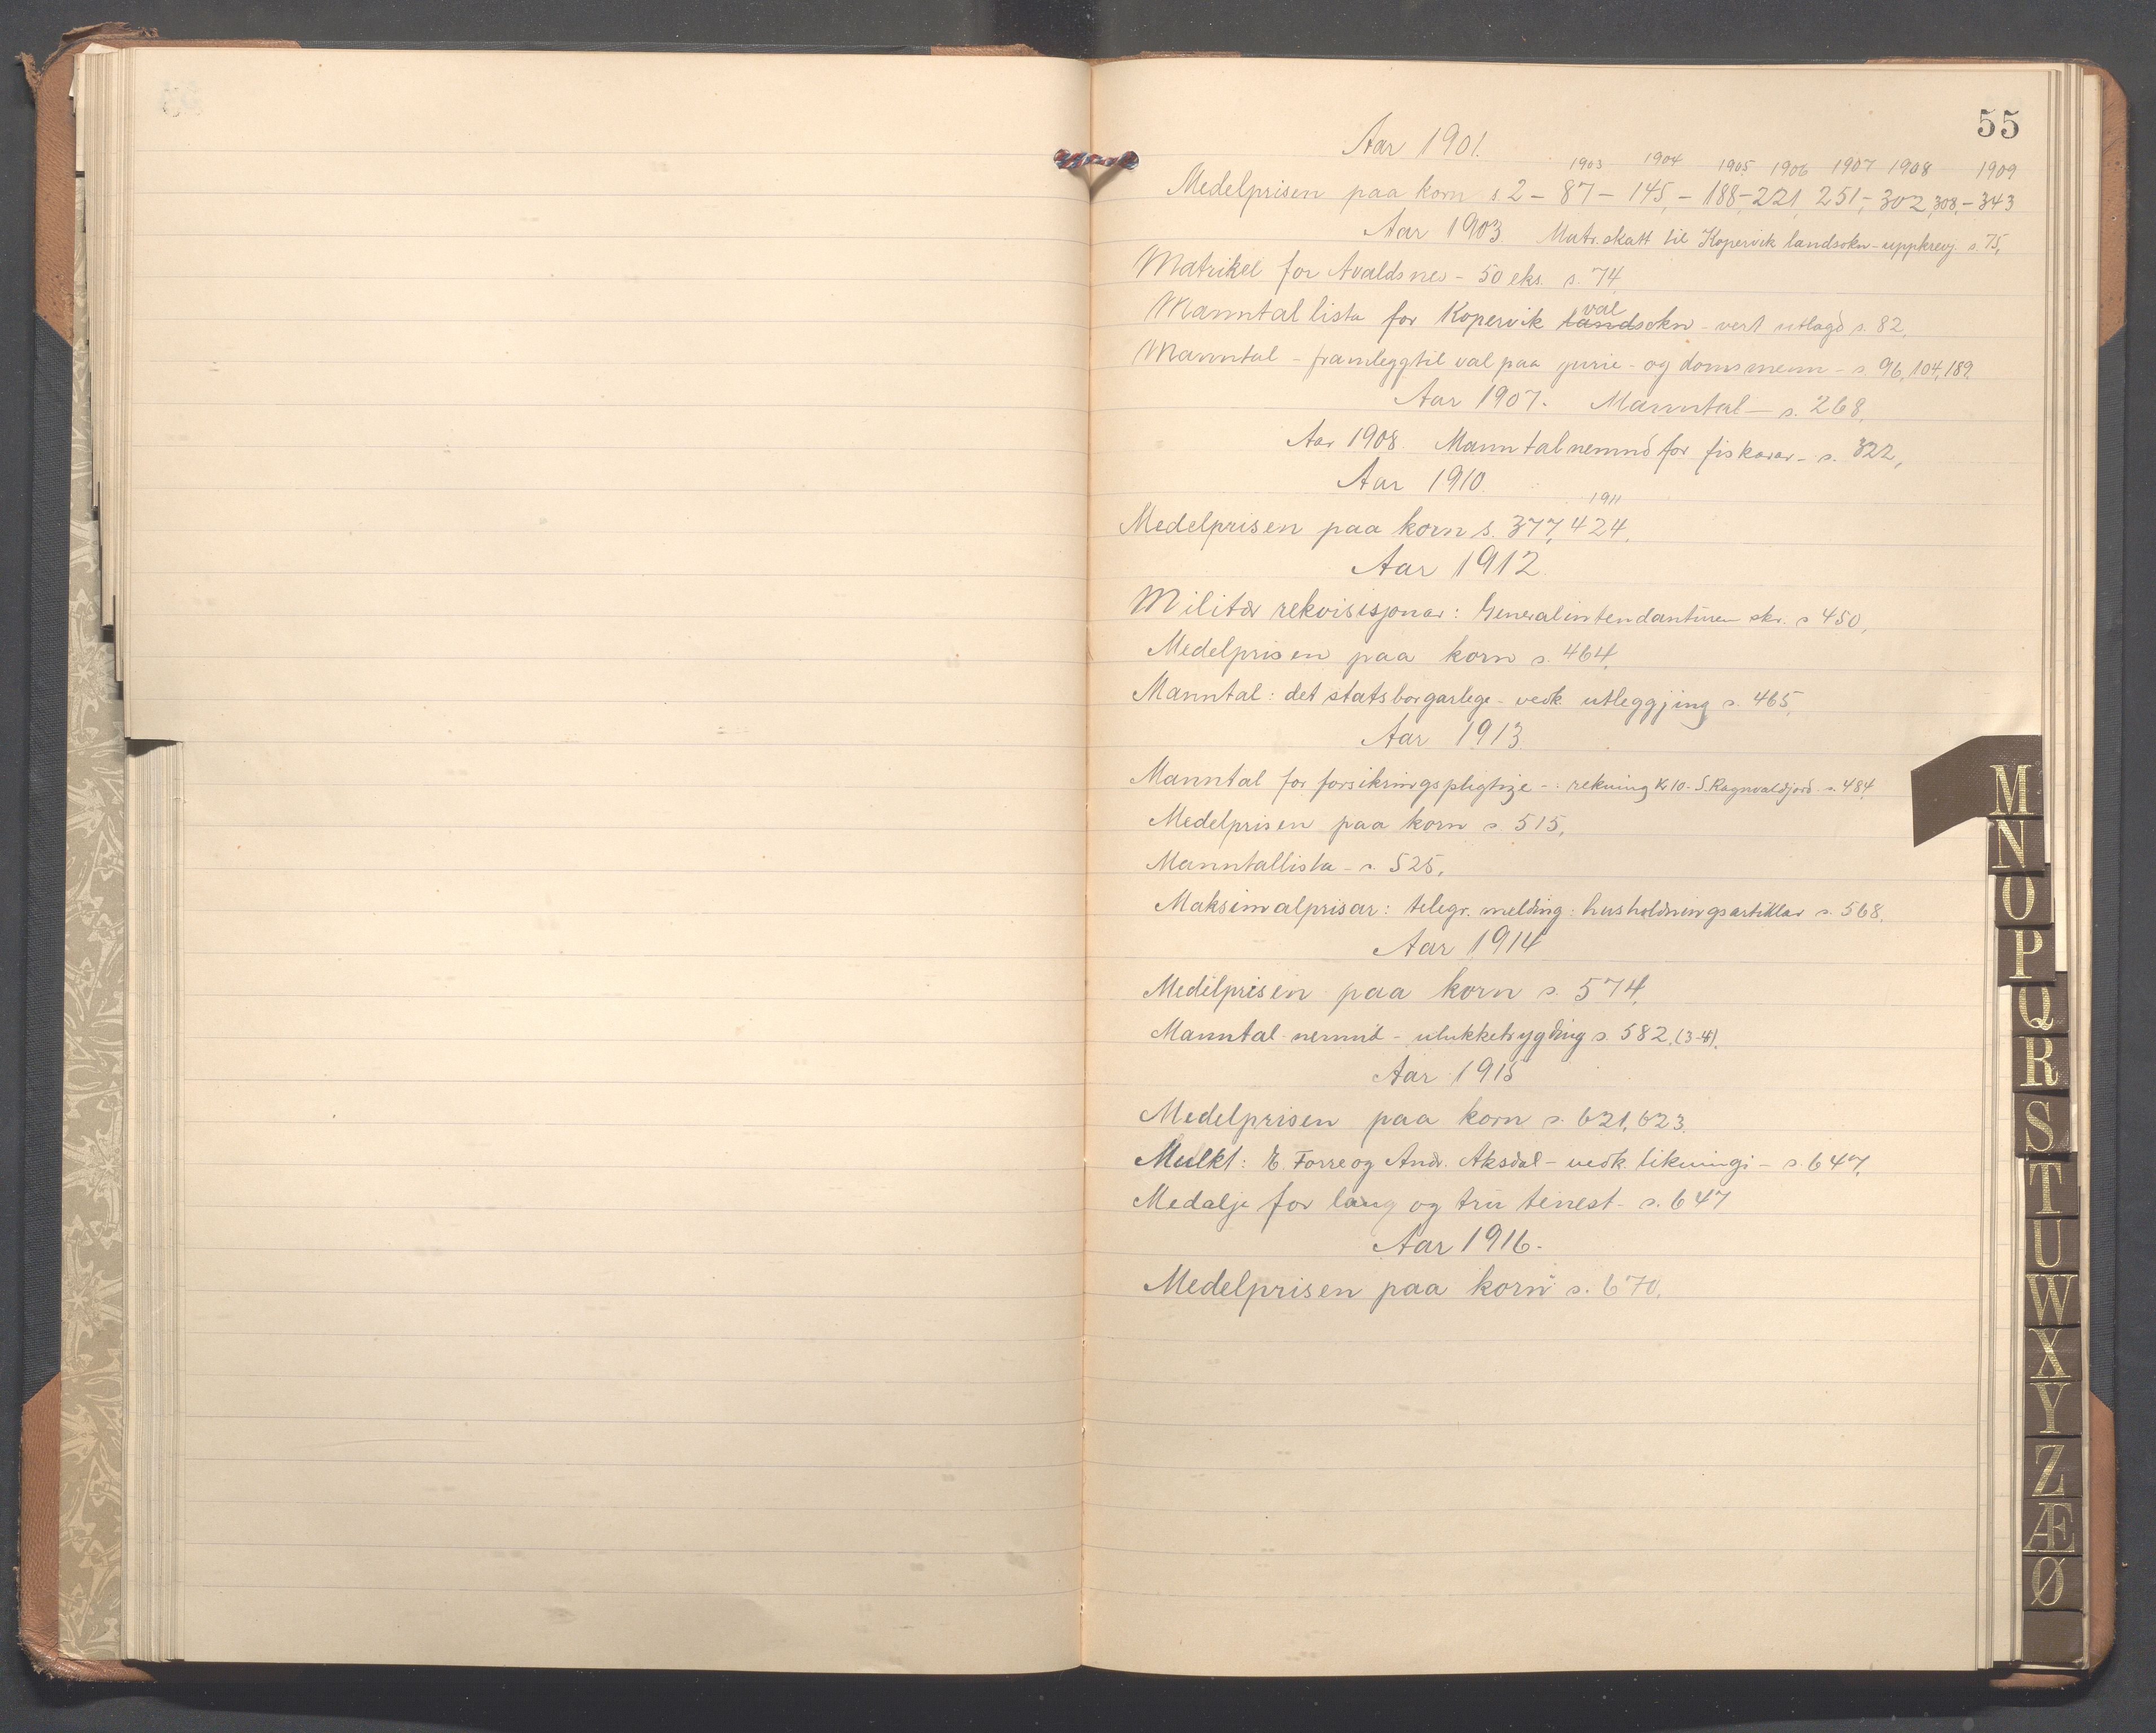 55
Aar 1901.
1903 1904 1905 1906 1907 1908 1909
Medelprisen paa korn s. 2 - 87 - 145, - 188, - 221, 251, - 302, 308, - 343
Aar 1903 Matr. skatt til Kopervik landsokn - uppkrevj. s. 75,
Matrikel for Avaldsnes - 50 eks. s. 74,
val
Manntallista for Kopervik landsokn - vert utlagd s. 82,
Manntal - framlegg til val paa jurie - og domsmenn - s. 96, 104, 189.
Aar 1907. Manntal - s. 268,
Aar 1908. Manntalnemnd for fiskarar - s. 322,
Aar 1910.
1911
Medelprisen paa korn s. 377, 424,
Aar 1912.
Militær rekvisisjonar: Generalintendanturen skr. s. 450,
Medelprisen paa korn s. 464,
Manntal: det statsborgarlege - vedk. utleggjing s. 465,
Aar 1913
Manntal for forsikringspligtige -: rekning Kr 10. S. Ragnvaldjord. s. 484,
Medelprisen paa korn s. 515,
Manntallista - s. 525,
Maksimalprisar: telegr. melding: husholdningsartiklar s. 568,
Aar 1914
Medelprisen paa korn s. 574,
Manntal-nemnd - ulukketrygding s. 582, (3-4).
Aar 1915
Medelprisen paa korn s. 621, 623.
Mulkt: E. Forre og Andr. Aksdal - vedk. likningi - s. 647,
Medalje for lang og tru tenest - s. 647
Aar 1916.
Medelprisen paa korn s. 670,
M
N
O
P
Q
R
S
T
U
W
X
Y
Z
Æ
Ø